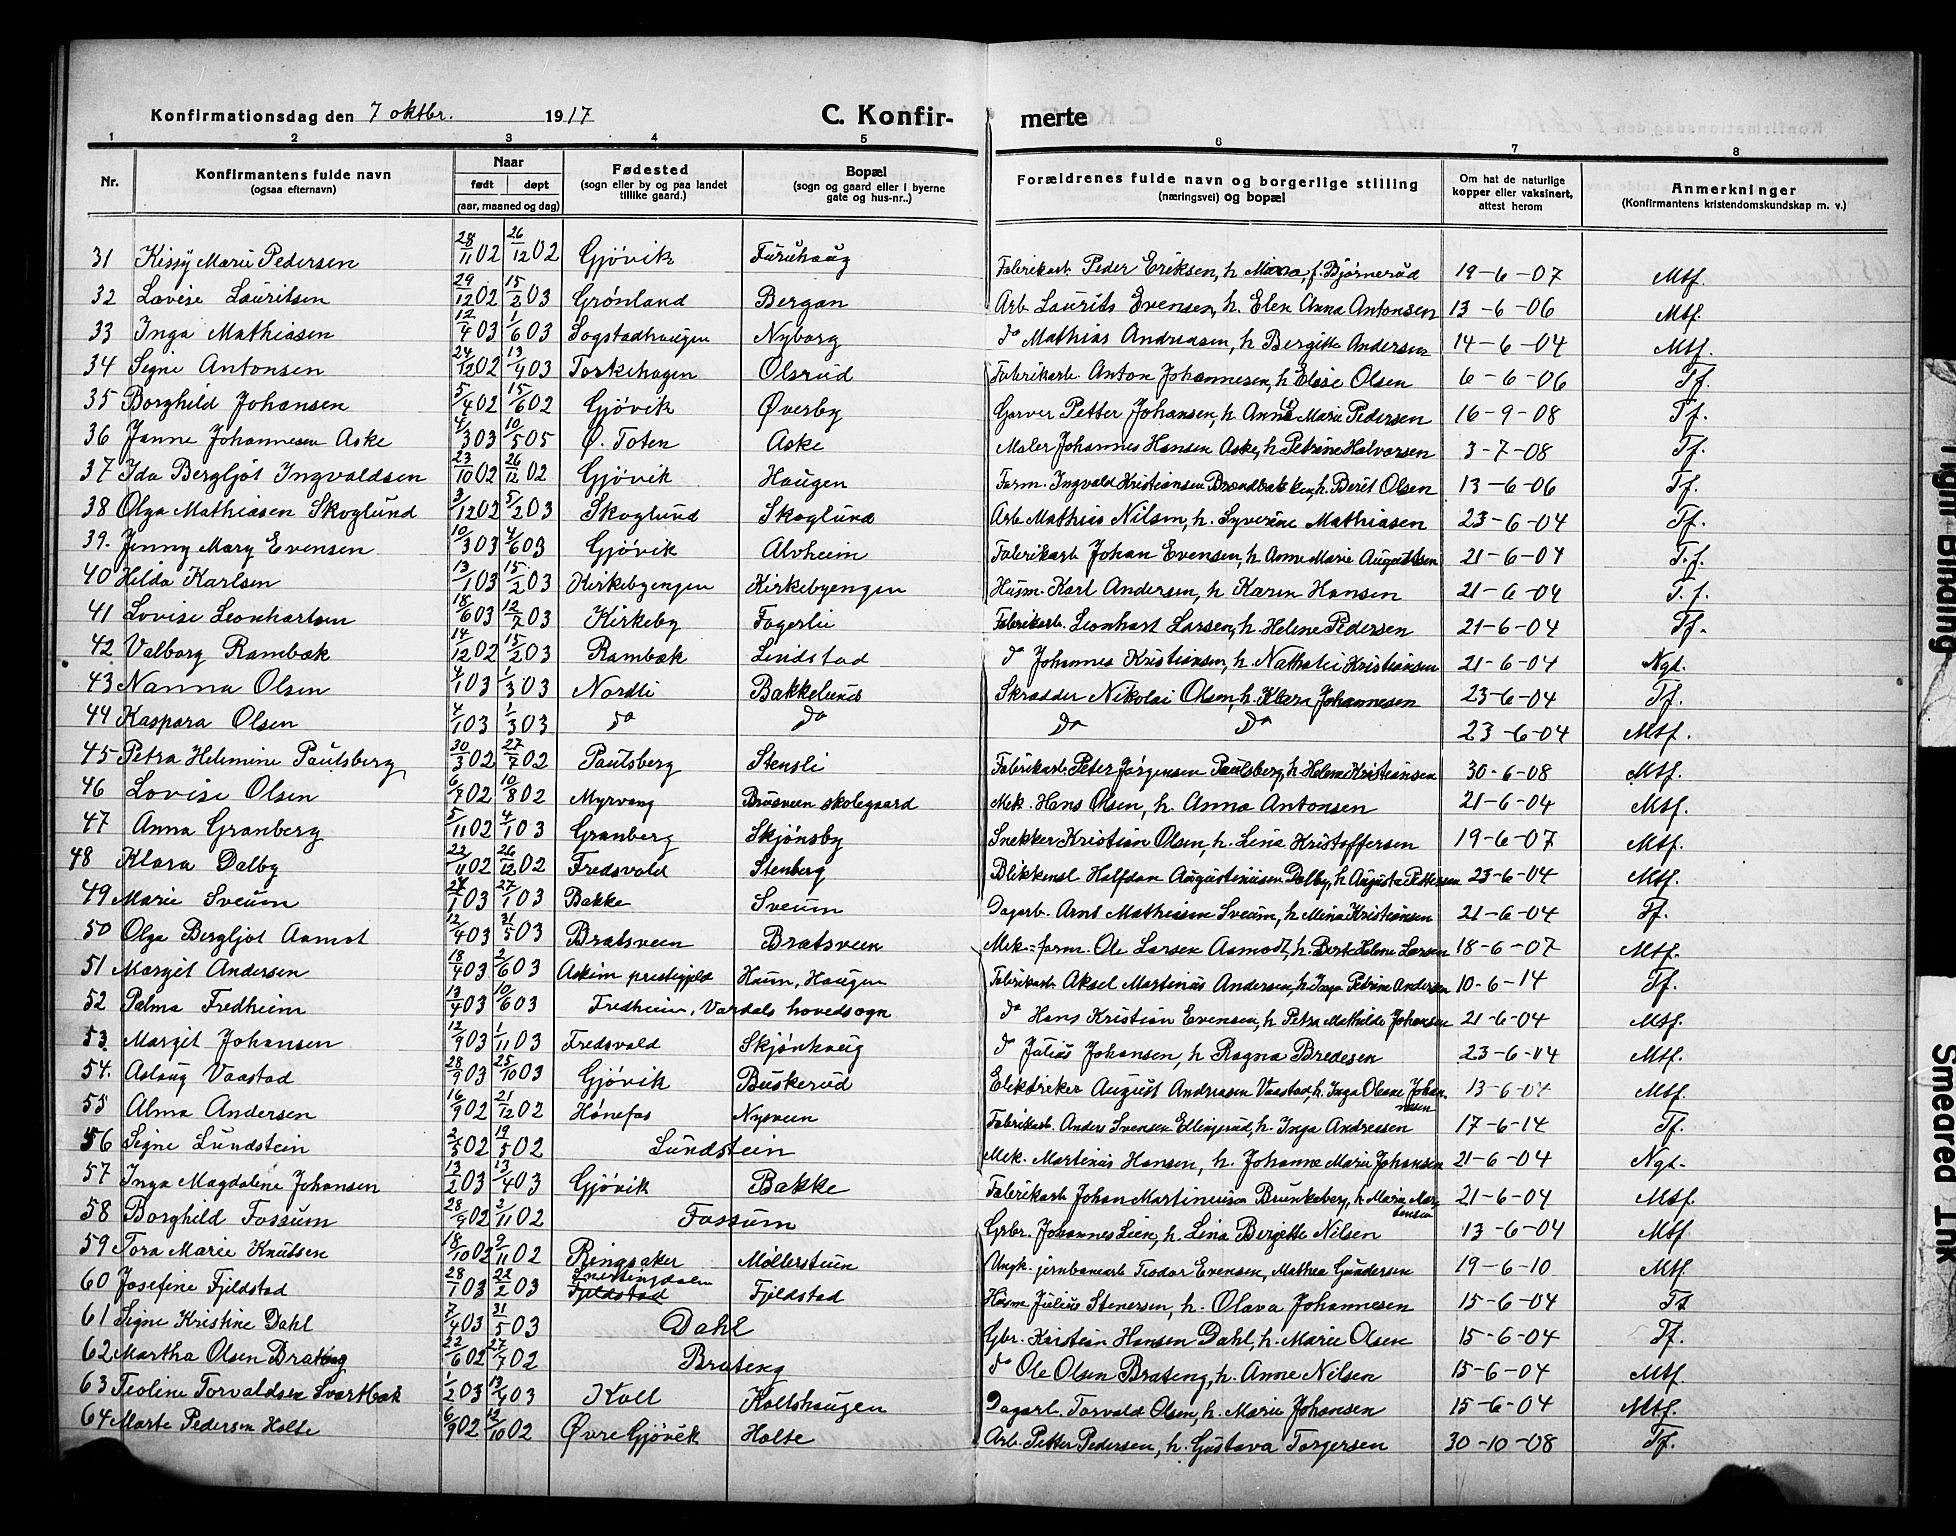 Konfirmationsdag den 7 oktbr. 1917 C. Konfir- merte
1 2 3 4 5 6 7 8
Nr. Konfirmantens fulde navn (ogsaa efternavn) Naar født døpt (aar, maaned og dag) Fødested (sogn eller by og paa landet tillike gaard.) Bopæl (sogn og gaard eller i byerne gate og hus-nr..) Forældrenes fulde navn og borgerlige stilling (næringsvei) og bopæl Om hat de naturlige kopper eller vaksinert, attest herom Anmerkninger (Konfirmantens kristendomskundskap m. v.)
31 Kissy Marie Pedersen 28/11 02 26/12 02 Gjøvik Furuhaug Fabrikarb. Peder Eriksen, h. Mina, f. Bjørnerud 19-6-07 Mtf.
32 Lovise Lauritsen 29/12 02 15/2 03 Grønland Bergan Arb. Laurits Evensen, h. Elen Anna Antonsen 13-6-06 Mtf.
33 Inga Mathiasen 12/4 03 1/6 03 Sogstadhaugen Nyborg do Mathias Andreasen, h. Bergitte Andersen 14-6-04 Mtf.
34 Signe Antonsen 24/12 02 13/4 03 Torkehagen Olsrud Fabrikarb. Anton Johannesen, h. Elise Olsen 6-6-06 Tf.
35 Borghild Johansen 5/4 02 15/6 02 Gjøvik Øverby Garver Petter Johansen, h. Anna Marie Pedersen 16-9-08 Tf.
36 Janne Johannesen Aske 4/3 03 10/5 05 Ø. Toten Aske Maler Johannes Hansen Aske, h. Petrine Halvorsen 3-7-08 Tf.
37 Ida Bergljot Ingvaldsen 23/10 02 26/12 02 Gjøvik Haugen Form. Ingvald Kristiansen Brændbakken, h. Berit Olsen 13-6-06 Tf.
38 Olga Mathiasen Skoglund 3/12 02 5/2 03 Skoglund Skoglund Arb. Mathis Nilsen, h. Syverine Mathiasen 23-6-04 Tf.
39. Jenny Mary Evensen 10/3 03 4/6 03 Gjøvik Alvheim Fabrikarb. Johan Evensen, h. Anne Marie Augustsen 21-6-04 T.f.
40 Hilda Karlsen 13/1 03 15/2 03 Kirkebyengen Kirkebyengen Husm. Karl Andersen, h. Karen Hansen 21-6-04 T.f.
41 Lovise Leonhartsen 18/6 03 12/7 03 Kirkeby Fagerli Fabrikarb. Leonhart Larsen, h. Helene Pedersen 21-6-04 Tf.
42 Valborg Rambæk 14/12 02 15/2 03 Rambæk Lindstad do Johannes Kristiansen, h. Nathalie Kristiansen 21-6-04 Ngt.
43 Nanna Olsen 4/1 03 1/3 03 Nordli Bakkelund Skrædder Nikolai Olsen, h. Klara Johannesen 23-6-04 Tf.
44 Kaspara Olsen 4/1 03 1/3 03 do do do do 23-6-04 Mtf.
45 Petra Helemine Paulsberg 30/3 02 27/7 02 Paulsberg Stensli Fabrikarb. Peter Jørgensen Paulsberg, h. Helene Kristiansen 30-6-08 Mtf.
46 Lovise Olsen 02 10/8 02 Myrvang Brusveen skolegaard Mek. Hans Olsen, h. Anna Antonsen 21-6-04 Mtf.
47 Anna Granberg 5/11 02 4/1 03 Granberg Skjønsby Snekker Kristian Olsen, h. Lina Kristoffersen 19-6-07 Mtf.
48 Klara Dalby 22/11 02 26/12 02 Fredsvold Stenberg Blikkensl. Halfdan Augustinusen Dalby, h. Augusta Pettersen 23-6-04 Mtf.
49 Marie Sveum 1 03 27/1 03 Bakke Sveum Dagarb. Arnt Mathiasen Sveum, h. Mina Kristiansen 21-6-04 Tf.
50 Olga Bergljot Aamot 12/4 03 31/5 03 Bratsveen Bratsveen Mek.=form. Ole Larsen Aamodt, h. Berte Helene Larsen 18-6-07 Mtf.
51 Margit Andersen 18/4 03 2/6 03 Askim prestegjeld Hunn, Haugen Fabrikarb. Aksel Martinius Andersen, h. Inga Petrine Andersen 10-6-14 Tf.
52 Palma Fredheim 13/4 03 10/6 03 Fredheim, Vardals hovedsogn do Hans Kristian Evensen, h. Petra Mathilde Johansen 21-6-04 Mtf.
53 Margit Johansen 12/9 03 1/11 03 Fredsvold Skjønhaug do Julius Johansen, h. Ragna Bredesen 23-6-04 Mtf.
54. Aslaug Vaastad 28/9 03 25/10 03 Gjøvik Buskerud Elektriker August Andreasen Vaastad, h. Inga Oleane Johannesen 13-6-04 Mtf.
55 Alma Andersen 16/9 02 21/12 02 Hønefos Nysveen Fabrikarb. Anders Svensen Ellingsrud, h. Inga Andresen 17-6-14 Tf.
56 Signe Lundstein 2/3 02 19/5 02 Lundstein Mek. Martinus Hansen, h. Johanne Marie Johansen 21-6-04 Ngt.
57 Inga Magdalene Johansen 13/2 03 13/4 03 Gjøvik Bakke Fabrikarb. Johan Martinusen Brunkeberg, h. Marie Martensen 21-6-04 Mtf.
58 Borghild Fossum 28/9 02 2/11 02 Fossum Grbr. Johannes Lien, h. Lina Bergitte Nilsen 13-6-04 Mtf.
59 Tora Marie Knutsen 18/10 02 9/11 02 Ringsaker Møllerstuen Ungk. jernbanearb. Teodor Evensen, Mathea Gundersen 19-6-10 Mtf.
60 Josefine Fjeldstad 28/1 03 22/2 03 Snertingdalen Fjeldstad Fjeldstad Husm. Julius Stenersen, h. Olava Johannesen 15-6-04 Tf.
61 Signe Kristine Dahl 7/4 03 31/5 03 Dahl Gbr. Kristian Hansen Dahl, h. Marie Olsen 15-6-04 Tf.
62 Martha Olsen Brateng 22/6 02 27/7 02 Brateng do Ole Olsen Brateng, h. Anne Nilsen 15-6-04 Mtf.
63 Teoline Torvaldsen Svartbæk 1/2 03 13/4 03 Kolt Koltshaugen Dagarb. Torvald Olsen, h. Marie Johansen 15-6-04 Mtf.
64 Marte Pedersen Holte 6/9 02 12/10 02 Øvre Gjøvik Holte Arb. Petter Pedersen, h. Gustava Torgersen 30-10-08 Tf.
Tight Binding
Smeared Ink